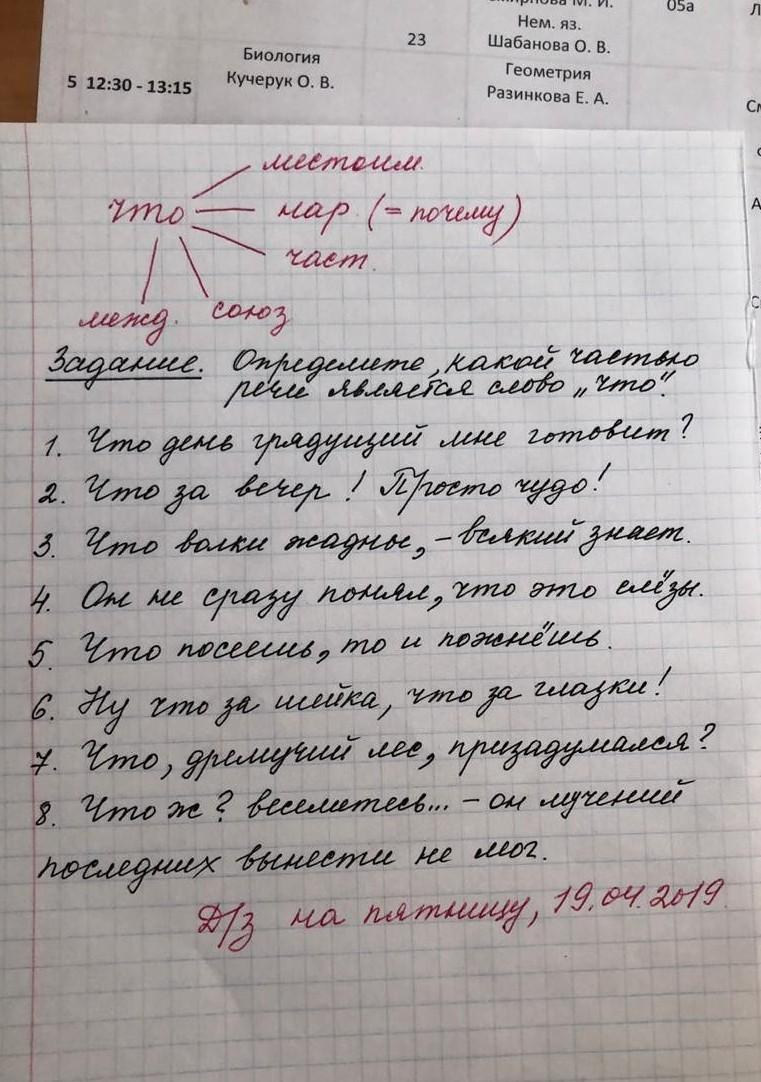 Смирнова М. И.
05а
Нем. яз.
23
Шабанова О. В.
Биология
Геометрия
5 12:30 - 13:15
Кучерук О. В.
Разинкова Е. А.
местоим.
что
нар. (= почему)
част.
межд.
союз
Задание. Определите, какой частью
речи является слово „что".
1. Что день грядущий мне готовит?
2. Что за вечер! Просто чудо!
3. Что волки жадны, – всякий знает.
4. Он не сразу понял, что это слёзы.
5. Что посеешь, то и пожнёшь.
6. Ну что за шейка, что за глазки!
7. Что, дремучий лес, призадумался?
8. Что ж? веселитесь... – он мучений
последних вынести не мог.
Д/з на пятницу, 19.04.2019